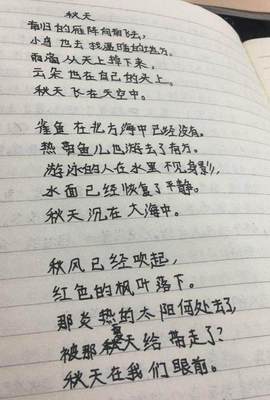 秋天
南归的雁阵向南飞去，
小鸟也去找温暖的地方。
雨滴从天上掉下来，
云朵也在自己的头上。
秋天飞在天空中。
鱼在北方海中已经没有。
热带鱼儿也游去了南方。
游泳的人在水里不见身影，
水面已经恢复了平静。
秋天沉在大海中。
秋风已经吹起，
红色的枫叶落下。
那炎热的太阳何处去了，
被那夏天给带走了？
秋天在我们眼前。